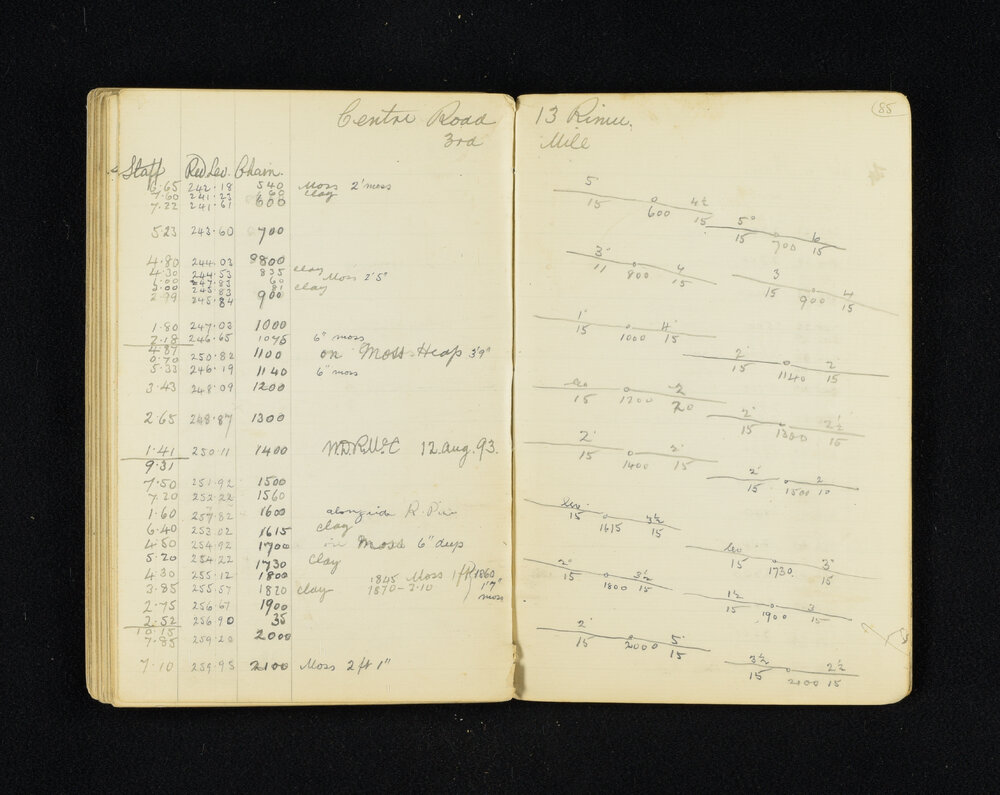 Centre Road 13 Rimu.
3rd Mile
85
Staff Red Lev. Chain.
6.65 242.18 540 Moss 2' moss
7.60 241.23 60 clay
7.22 241.61 600
5.23 243.60 700
4.80 244.03 800
4.30 244.53 835 clay
1.00 247.83 60 Moss 2'5"
3.00 245.83 81 clay
2.99 245.84 900
1.80 247.03 1000
2.18 246.65 1075 6" moss
4.87
0.70 250.82 1100 on Moss Heap 3'9"
5.33 246.19 1140 6" moss
3.43 248.09 1200
2.65 248.87 1300
1.41 250.11 1400 12. Aug. 93.
9.31
7.50 251.92 1500
7.20 252.22 1560
1.60 257.82 1600 alongside R.
6.40 253.02 1615 clay
4.50 254.92 1700 in Moss 6" deep
5.20 254.22 1730 clay
4.30 255.12 1800 1845 Moss 1ft 1860
3.85 255.57 1820 clay 1870 - 2.10 1'7" moss
2.75 256.67 1900
2.52 256.90 35
10.15
7.85 259.20 2000
7.10 259.95 2100 Moss 2 ft 1"
5 4½
15 600 15
5° 6
15 700 15
3° 4
11 800 15
3 4
15 900 15
1' 4'
15 1000 15
2' 2
15 1140 15
leo 2
15 1200 20
2' 2½
15 1300 15
2' 2'
15 1400 15
2' 2
15 1500 10
leo 3½
15 1615 15
leo 3°
15 1730 15
2° 3½
15 1800 15
1½ 3
15 1900 15
2' 5'
15 2000 15
3½ 2½
15 2100 15